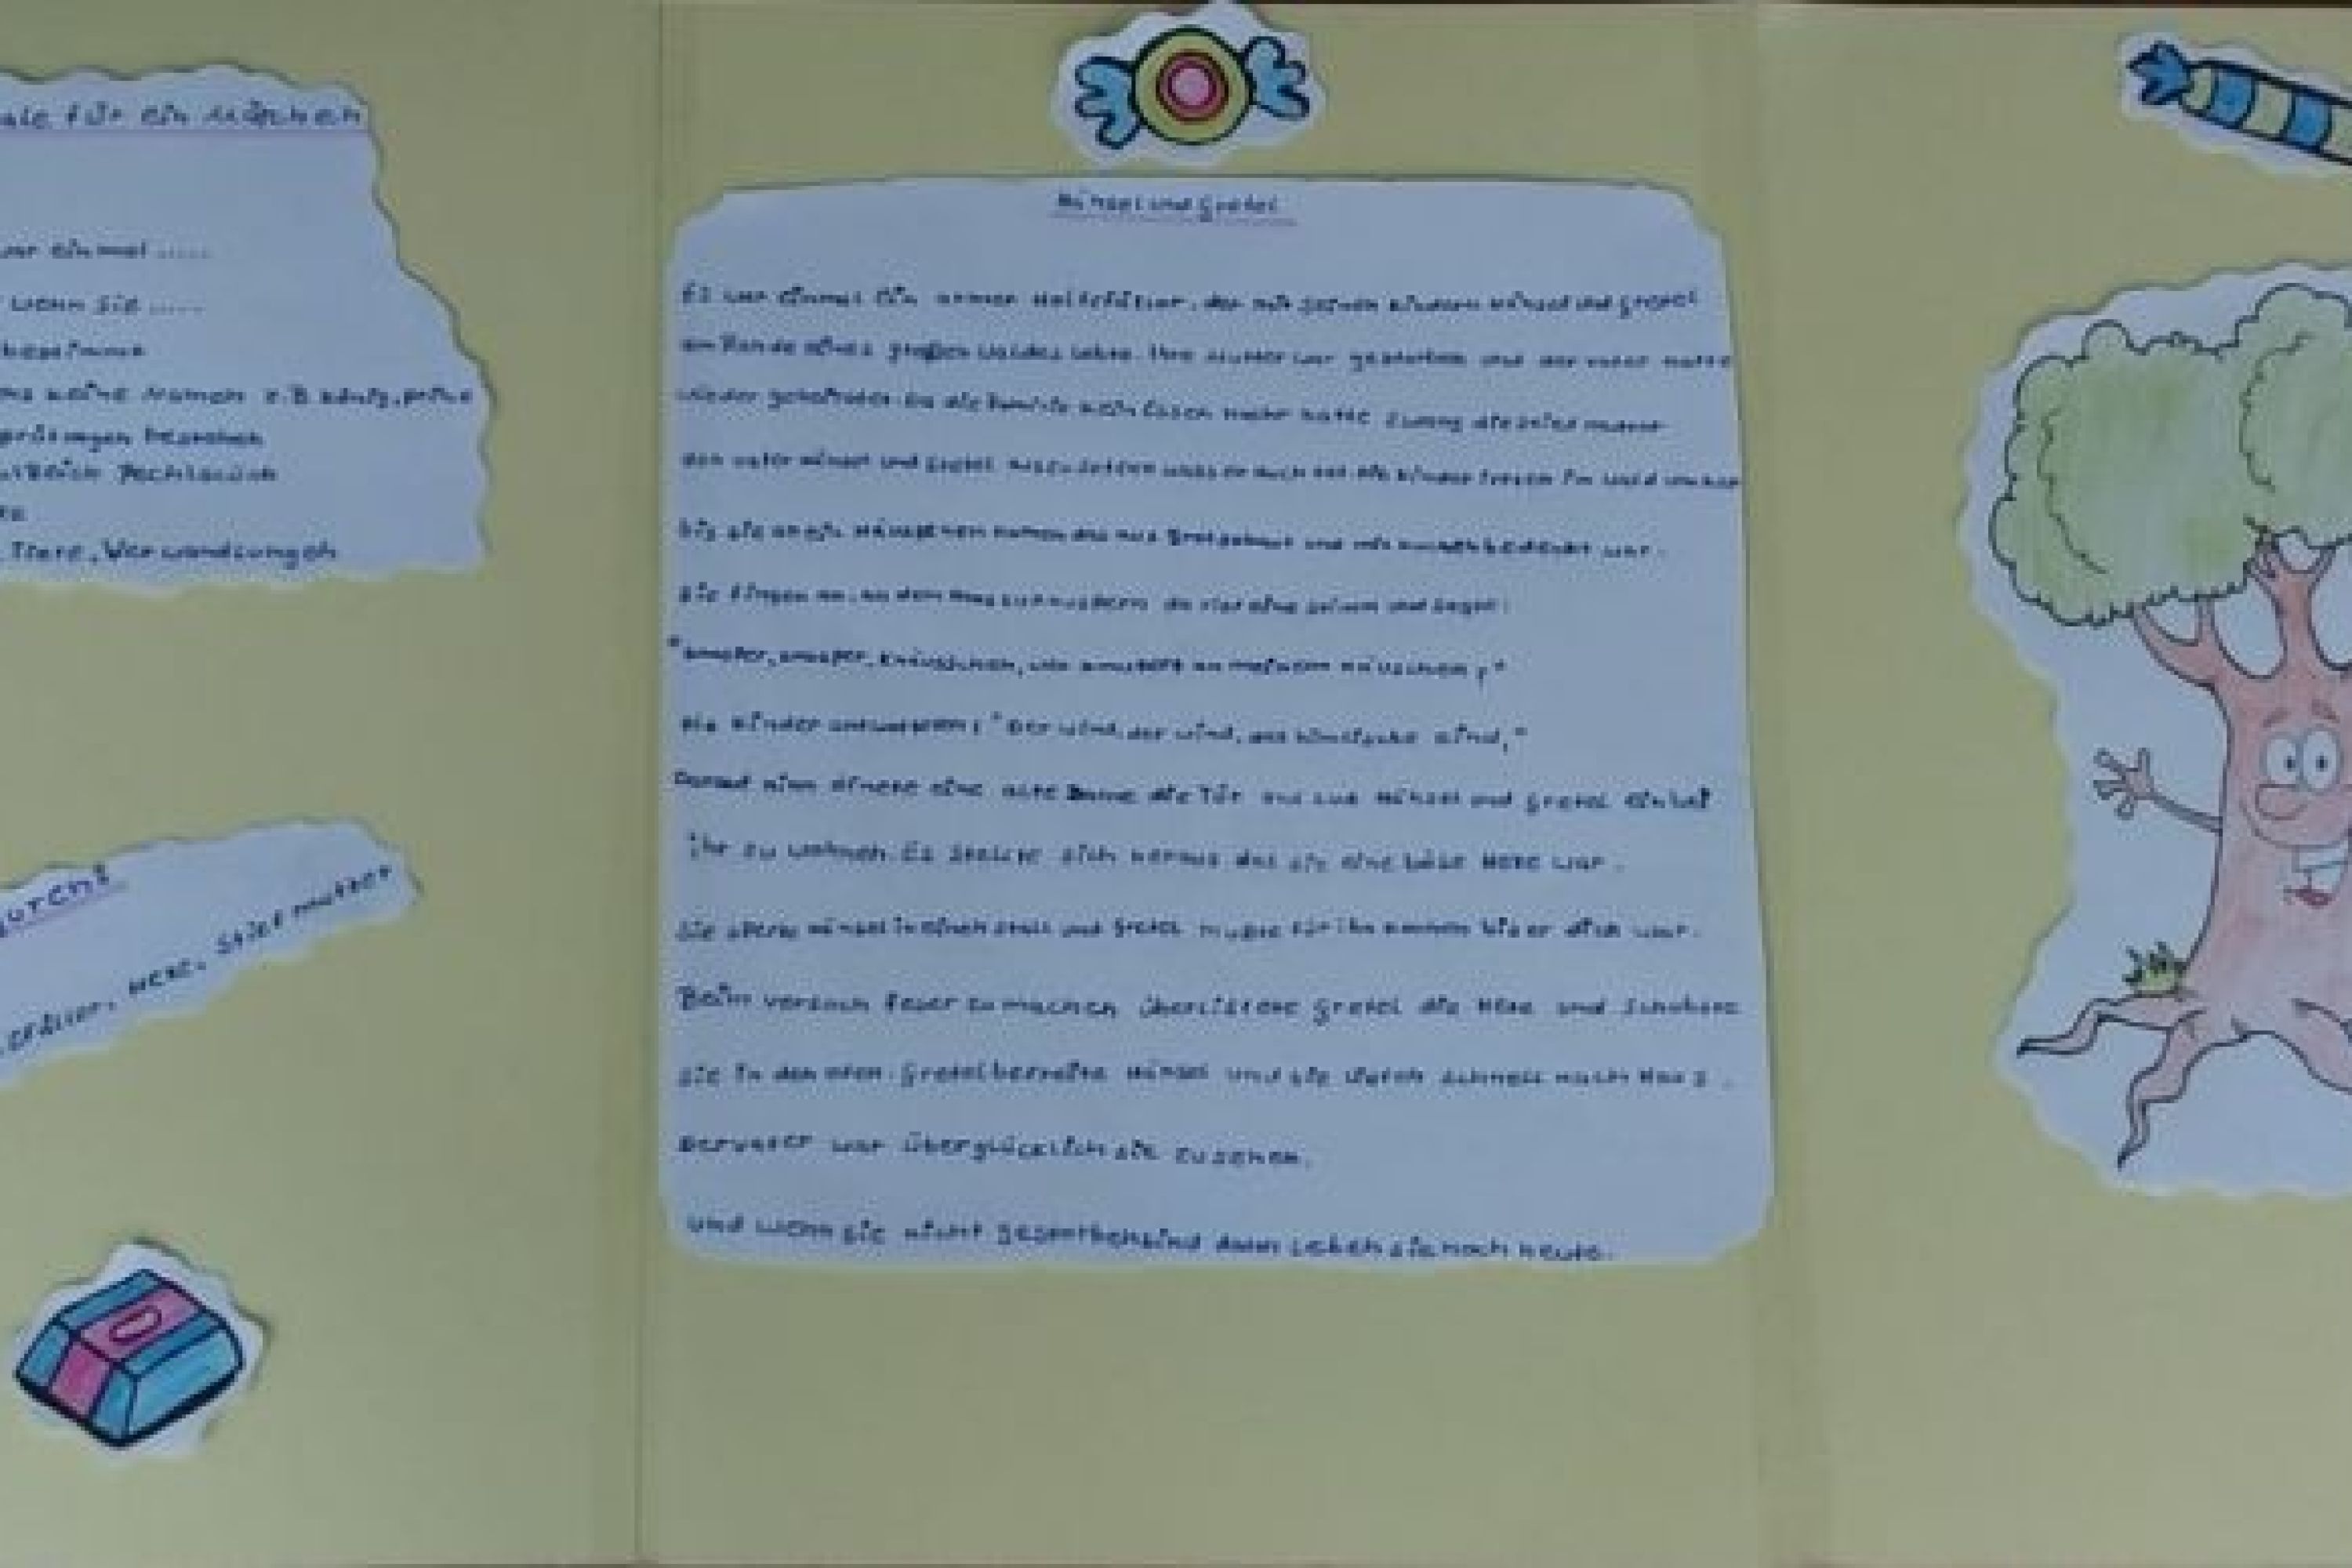 für ein Märchen
war einmal .....
wenn sie .....
keine Namen z.B König, prinz
prüfungen bestehen
Tiere, Verwandlungen
Hexe, Stiefmutter
Hänsel und Gretel
Es war einmal ein armer Holzfäller, der mit seinen kindern Hänsel und Gretel
am Rande eines großen Waldes lebte. Ihre Mutter war gestorben und der vater hatte
wieder geheiratet. Da die Familie kein Essen mehr hatte zwang die
den vater Hänsel und Gretel auszusetzen was er auch tat. die kinder im wald umher
bis sie an ein Häuschen kamen das aus Brot gebaut und mit kuchen bedeckt war.
sie fingen an, an dem Haus zu knuspern da rief eine und sagte:
"knusper, knusper, knäuschen, wer knuspert an meinem Häuschen?"
die kinder antworteten: "Der wind, der wind, das himlische kind,"
öfnete eine alte Dame die Tür und lud Hänsel und Gretel ein bei
ihr zu wohnen. Es stellte sich heraus das sie eine böse Hexe war.
sie Hänsel in einen stall und Gretel mußte für ihn kochen bis er dick war.
Beim versuch feuer zu machen überlistete Gretel die Hexe und Schubste
sie in den ofen. Gretel befreite Hänsel und sie liefen schnell nach Haus.
Der vater war überglücklich sie zu sehen.
und wenn sie nicht gestorben sind dann leben sie noch heute.